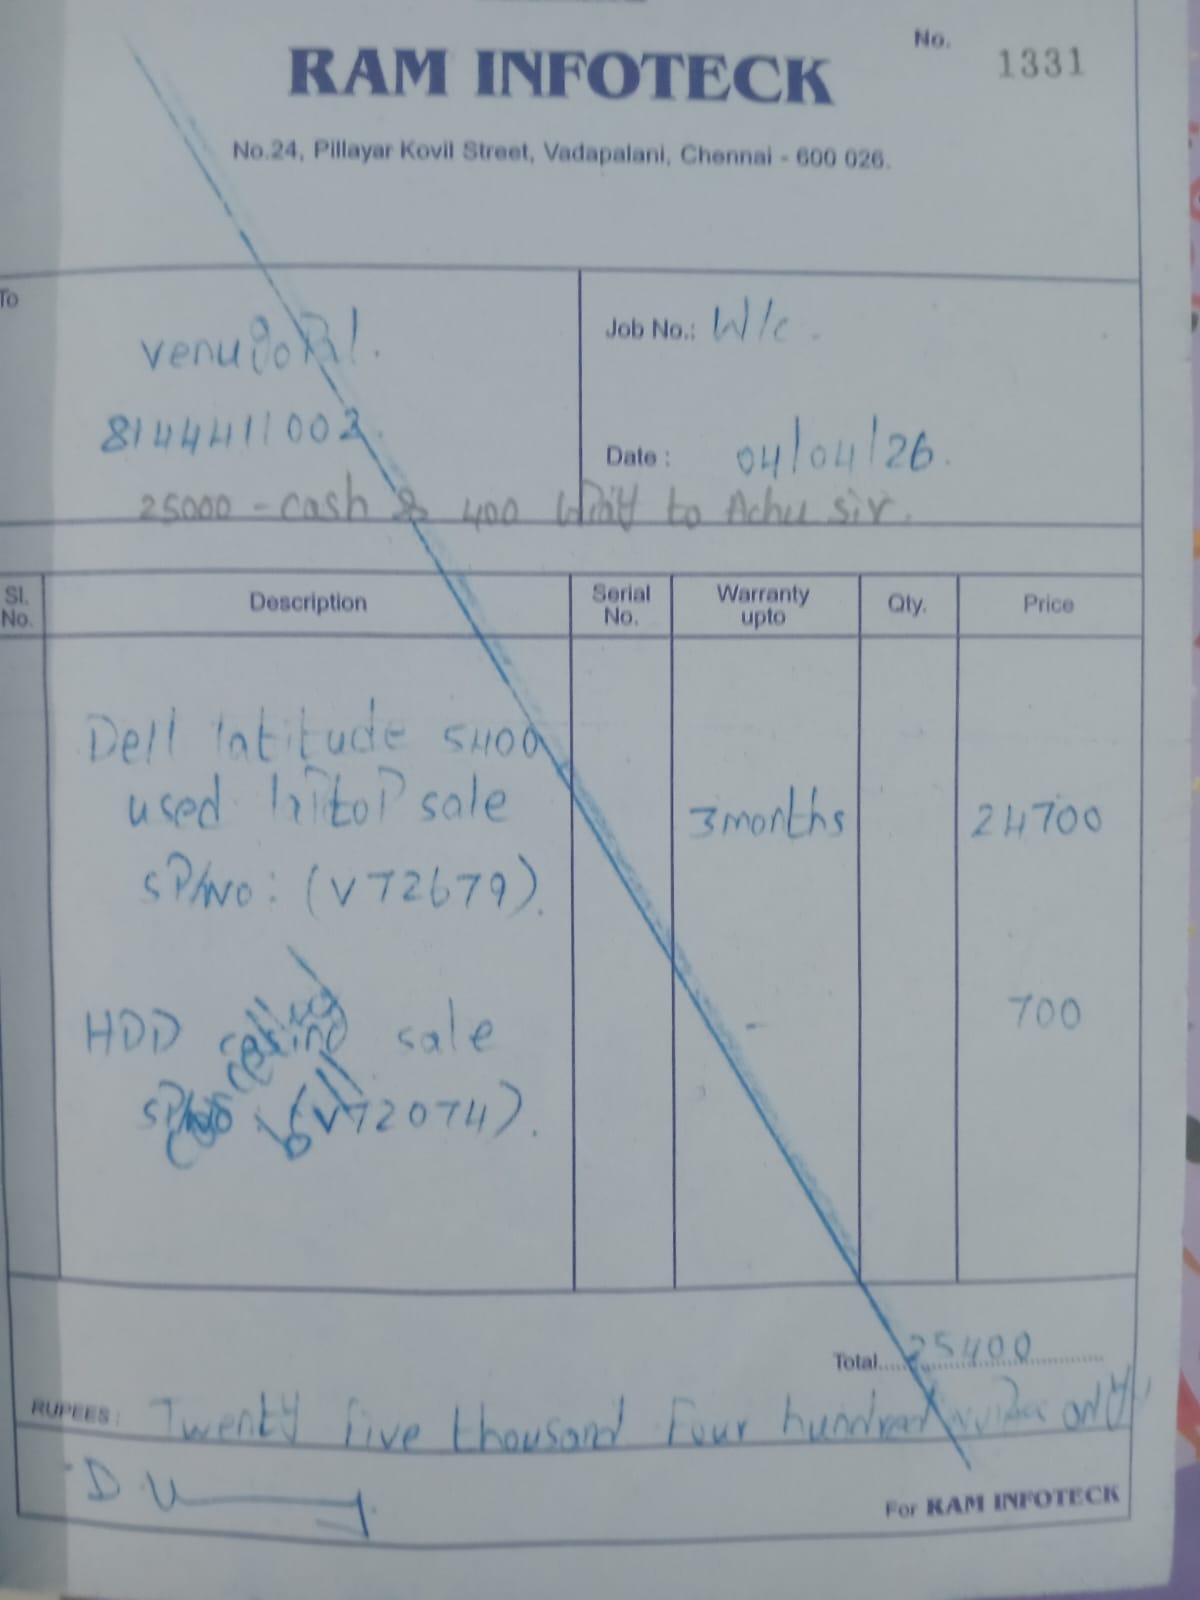 No. 1331
RAM INFOTECK
No.24, Pillayar Kovil Street, Vadapalani, Chennai - 600 026.
To
venugoPal.
8144411002.
Job No.: W/c.
Date : 04/04/26.
25000 - cash & 400 to Achu sir.
Sl. No. Description Serial No. Warranty upto Qty. Price
Dell latitude 5400
used laPtoP sale 3months 24700
SP/NO: (V72679).
HDD sale 700
(V72074).
Total 25400
RUPEES : Twenty five thousand Four hundred only
For RAM INFOTECK